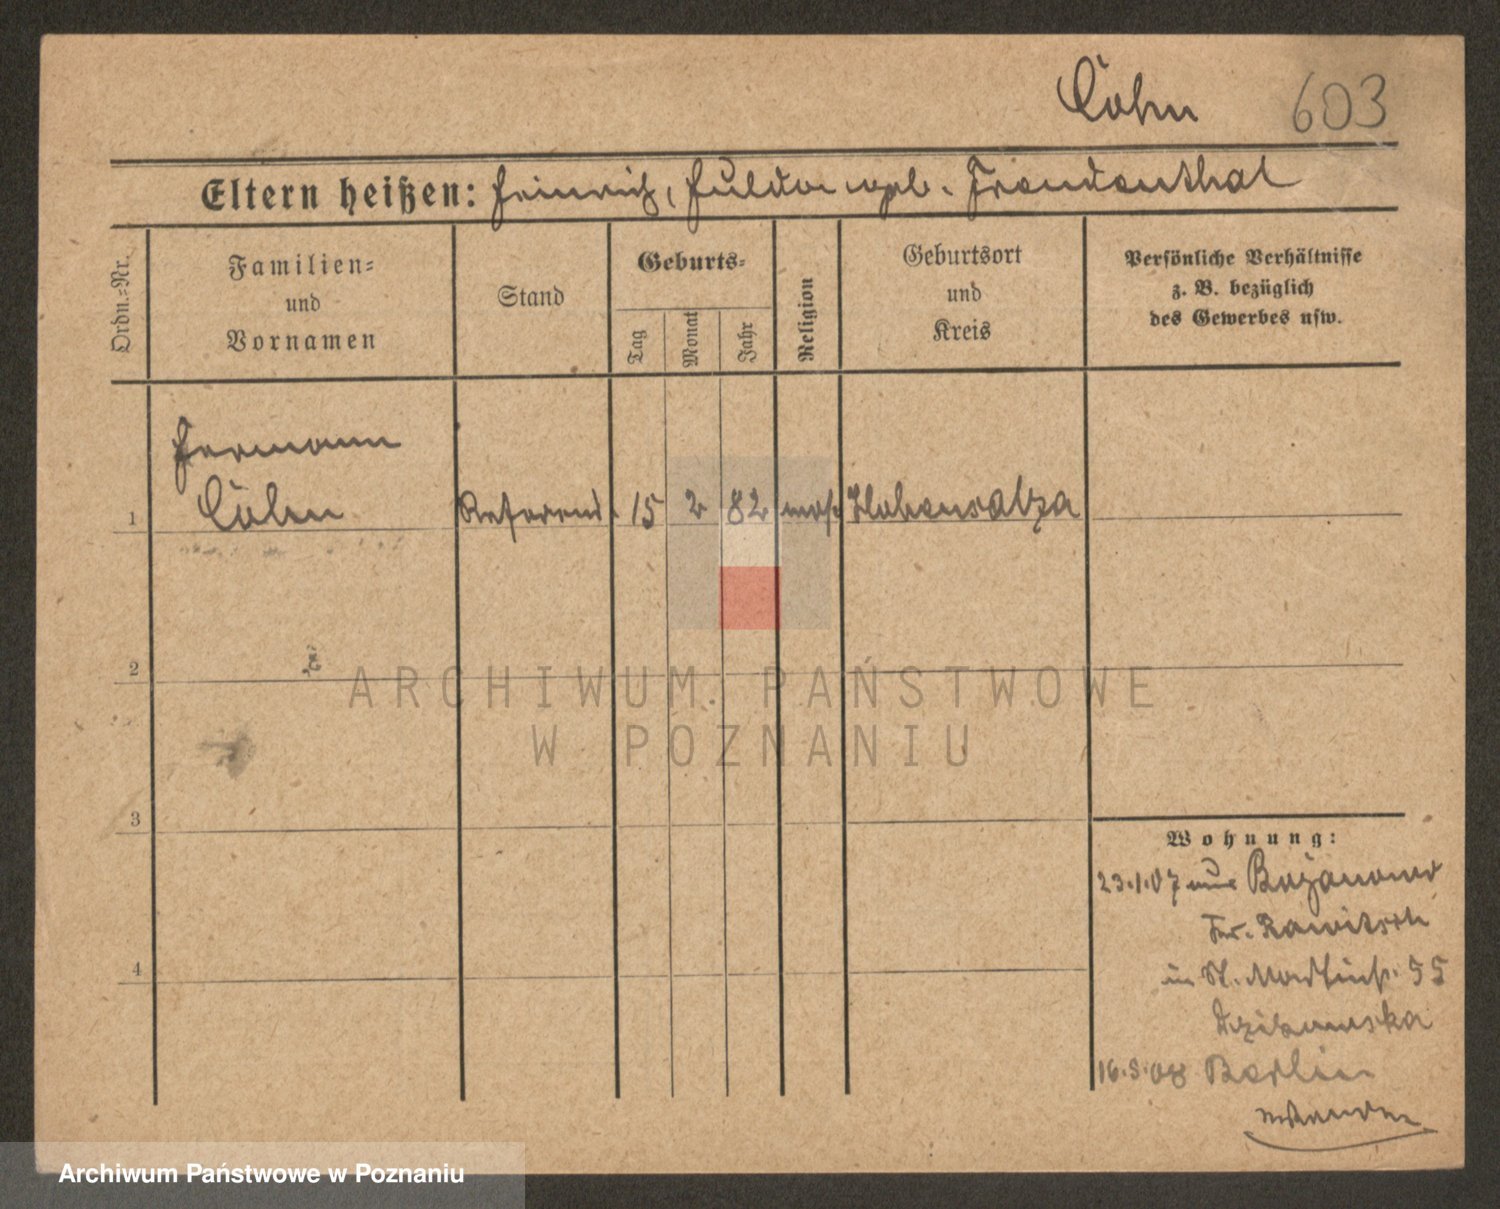 Cohn 603
Eltern heißen: Heinrich, Hulda geb. Freudenthal
Ordn.=Nr.
Familien=
und
Vornamen
Stand
Geburts=
Tag
Monat
Jahr
Religion
Geburtsort
und
Kreis
Persönliche Verhältnisse
z. B. bezüglich
des Gewerbes usw.
Hermann
1 Cohn Referend. 15 2 82 mos. Hohensalza
2
3
4
Wohnung:
23.1.07 aus Bojanowo
Kr. Rawitsch
in St. Martinstr. 55
16.3.08 Berlin
ARCHIWUM PAŃSTWOWE
W POZNANIU
Archiwum Państwowe w Poznaniu